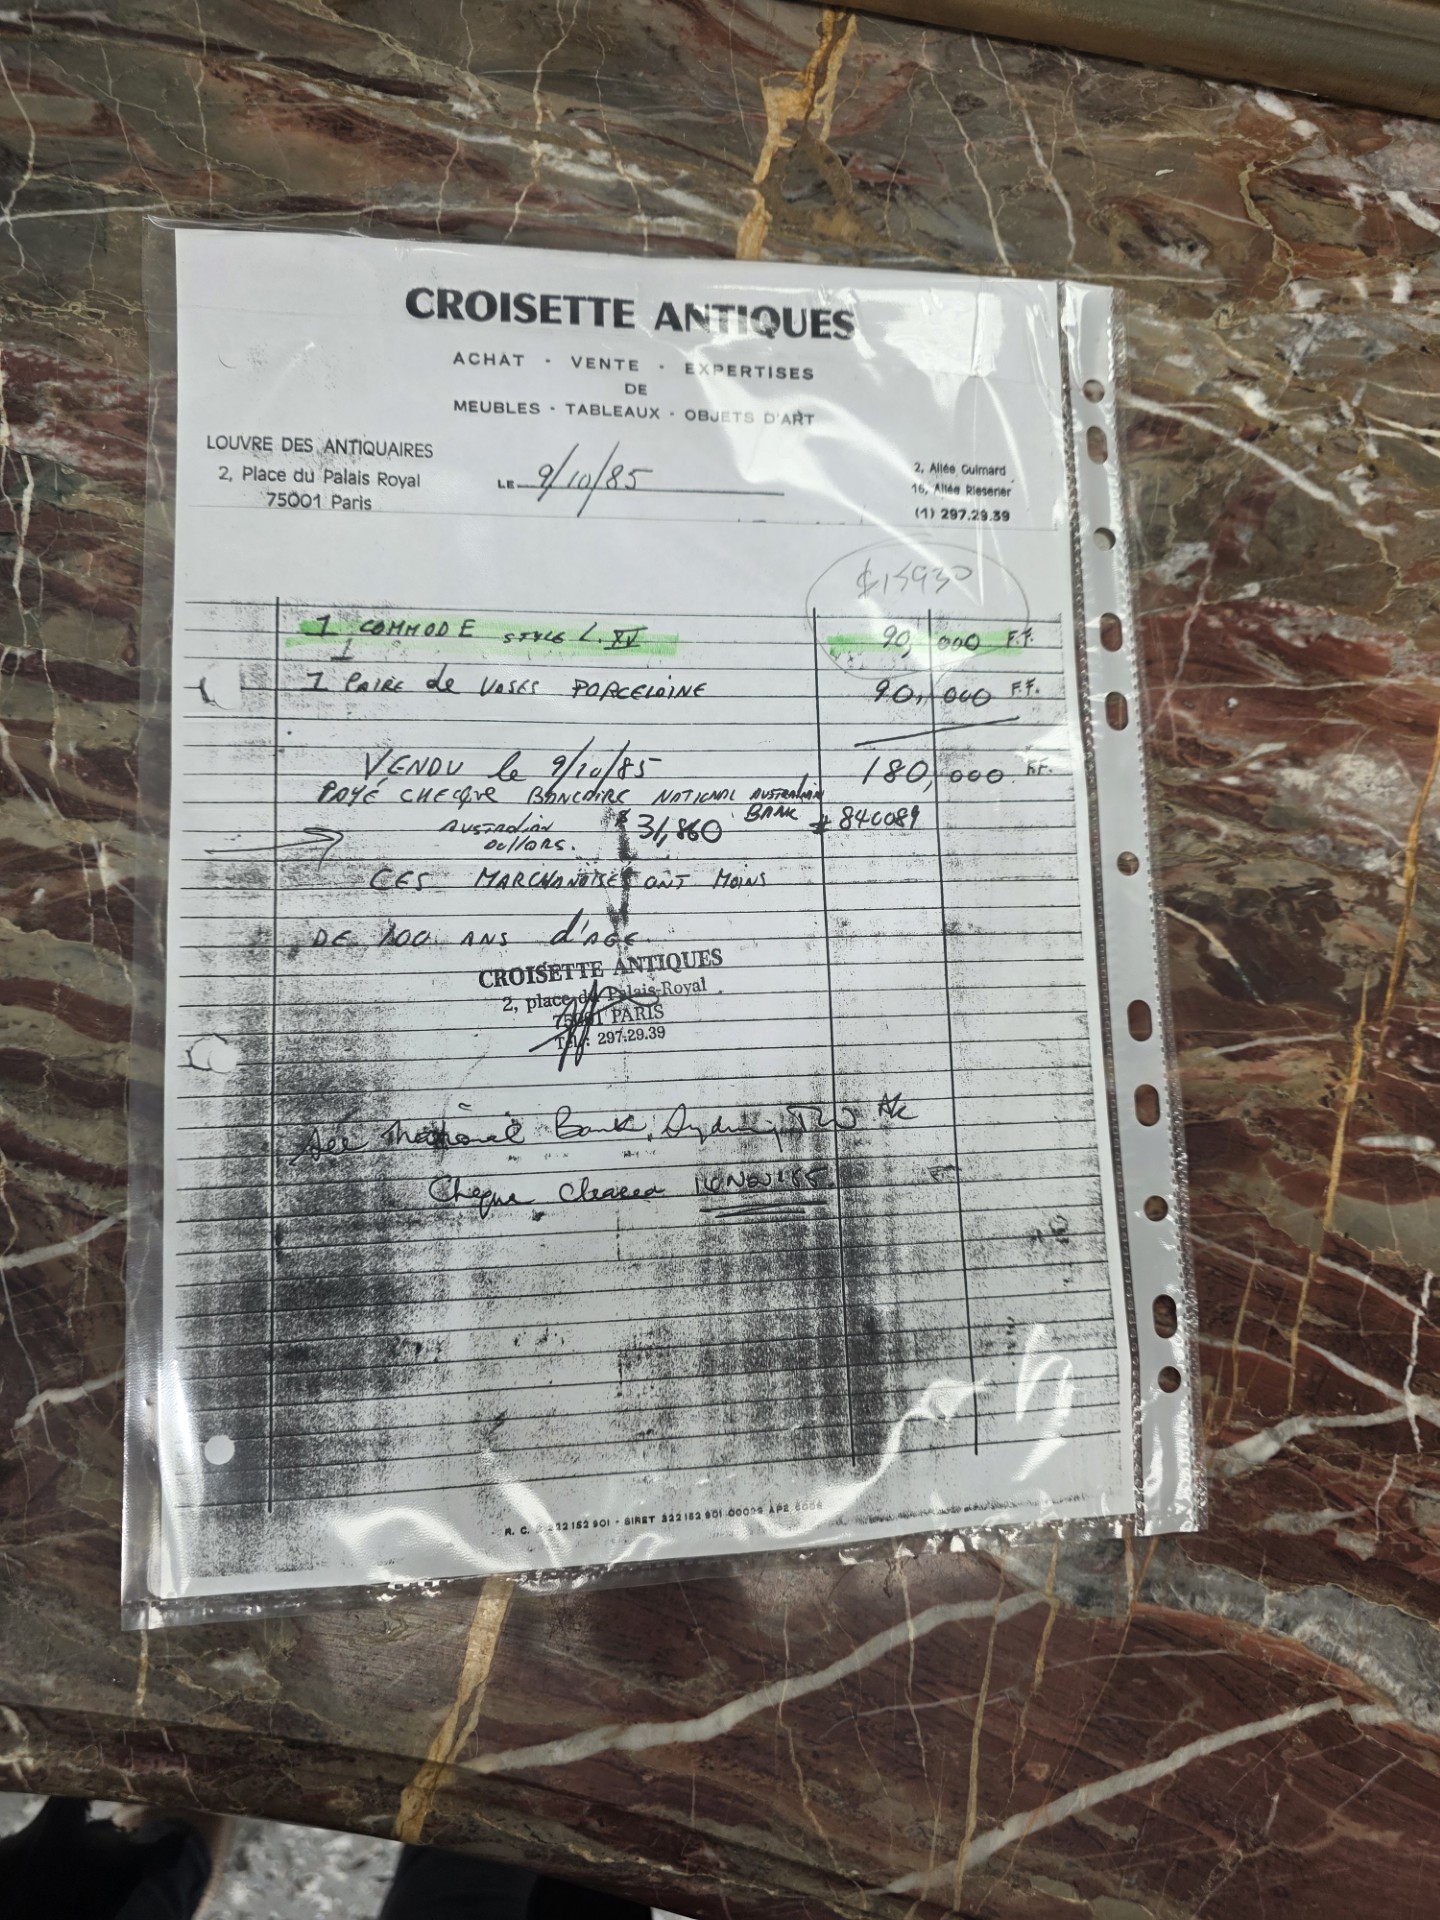 CROISETTE ANTIQUES
ACHAT - VENTE - EXPERTISES
DE
MEUBLES - TABLEAUX - OBJETS D'ART
LOUVRE DES ANTIQUAIRES
2, Place du Palais Royal
75001 Paris
LE 9/10/85
2, Allée Guimard
16, Allée Riesener
(1) 297.29.39
$15930
1 COMMODE STYLE L. XV 90,000 F.F.
1 PAIRE de VASES PORCELAINE 90,000 F.F.
VENDU le 9/10/85 180,000 F.F.
PAYÉ CHEQUE BANCAIRE NATIONAL AUSTRALIAN
BANK # 840089
AUSTRALIAN
DOLLARS. $31,860
CES MARCHANDISES ONT MOINS
DE 100 ANS d'AGE.
CROISETTE ANTIQUES
2, place du Palais-Royal
75001 PARIS
Tél.: 297.29.39
National Bank, Sydney
Cheque Cleared 14 Nov '85.
R. C. 322 152 901 - SIRET 322 152 901 00029 APE